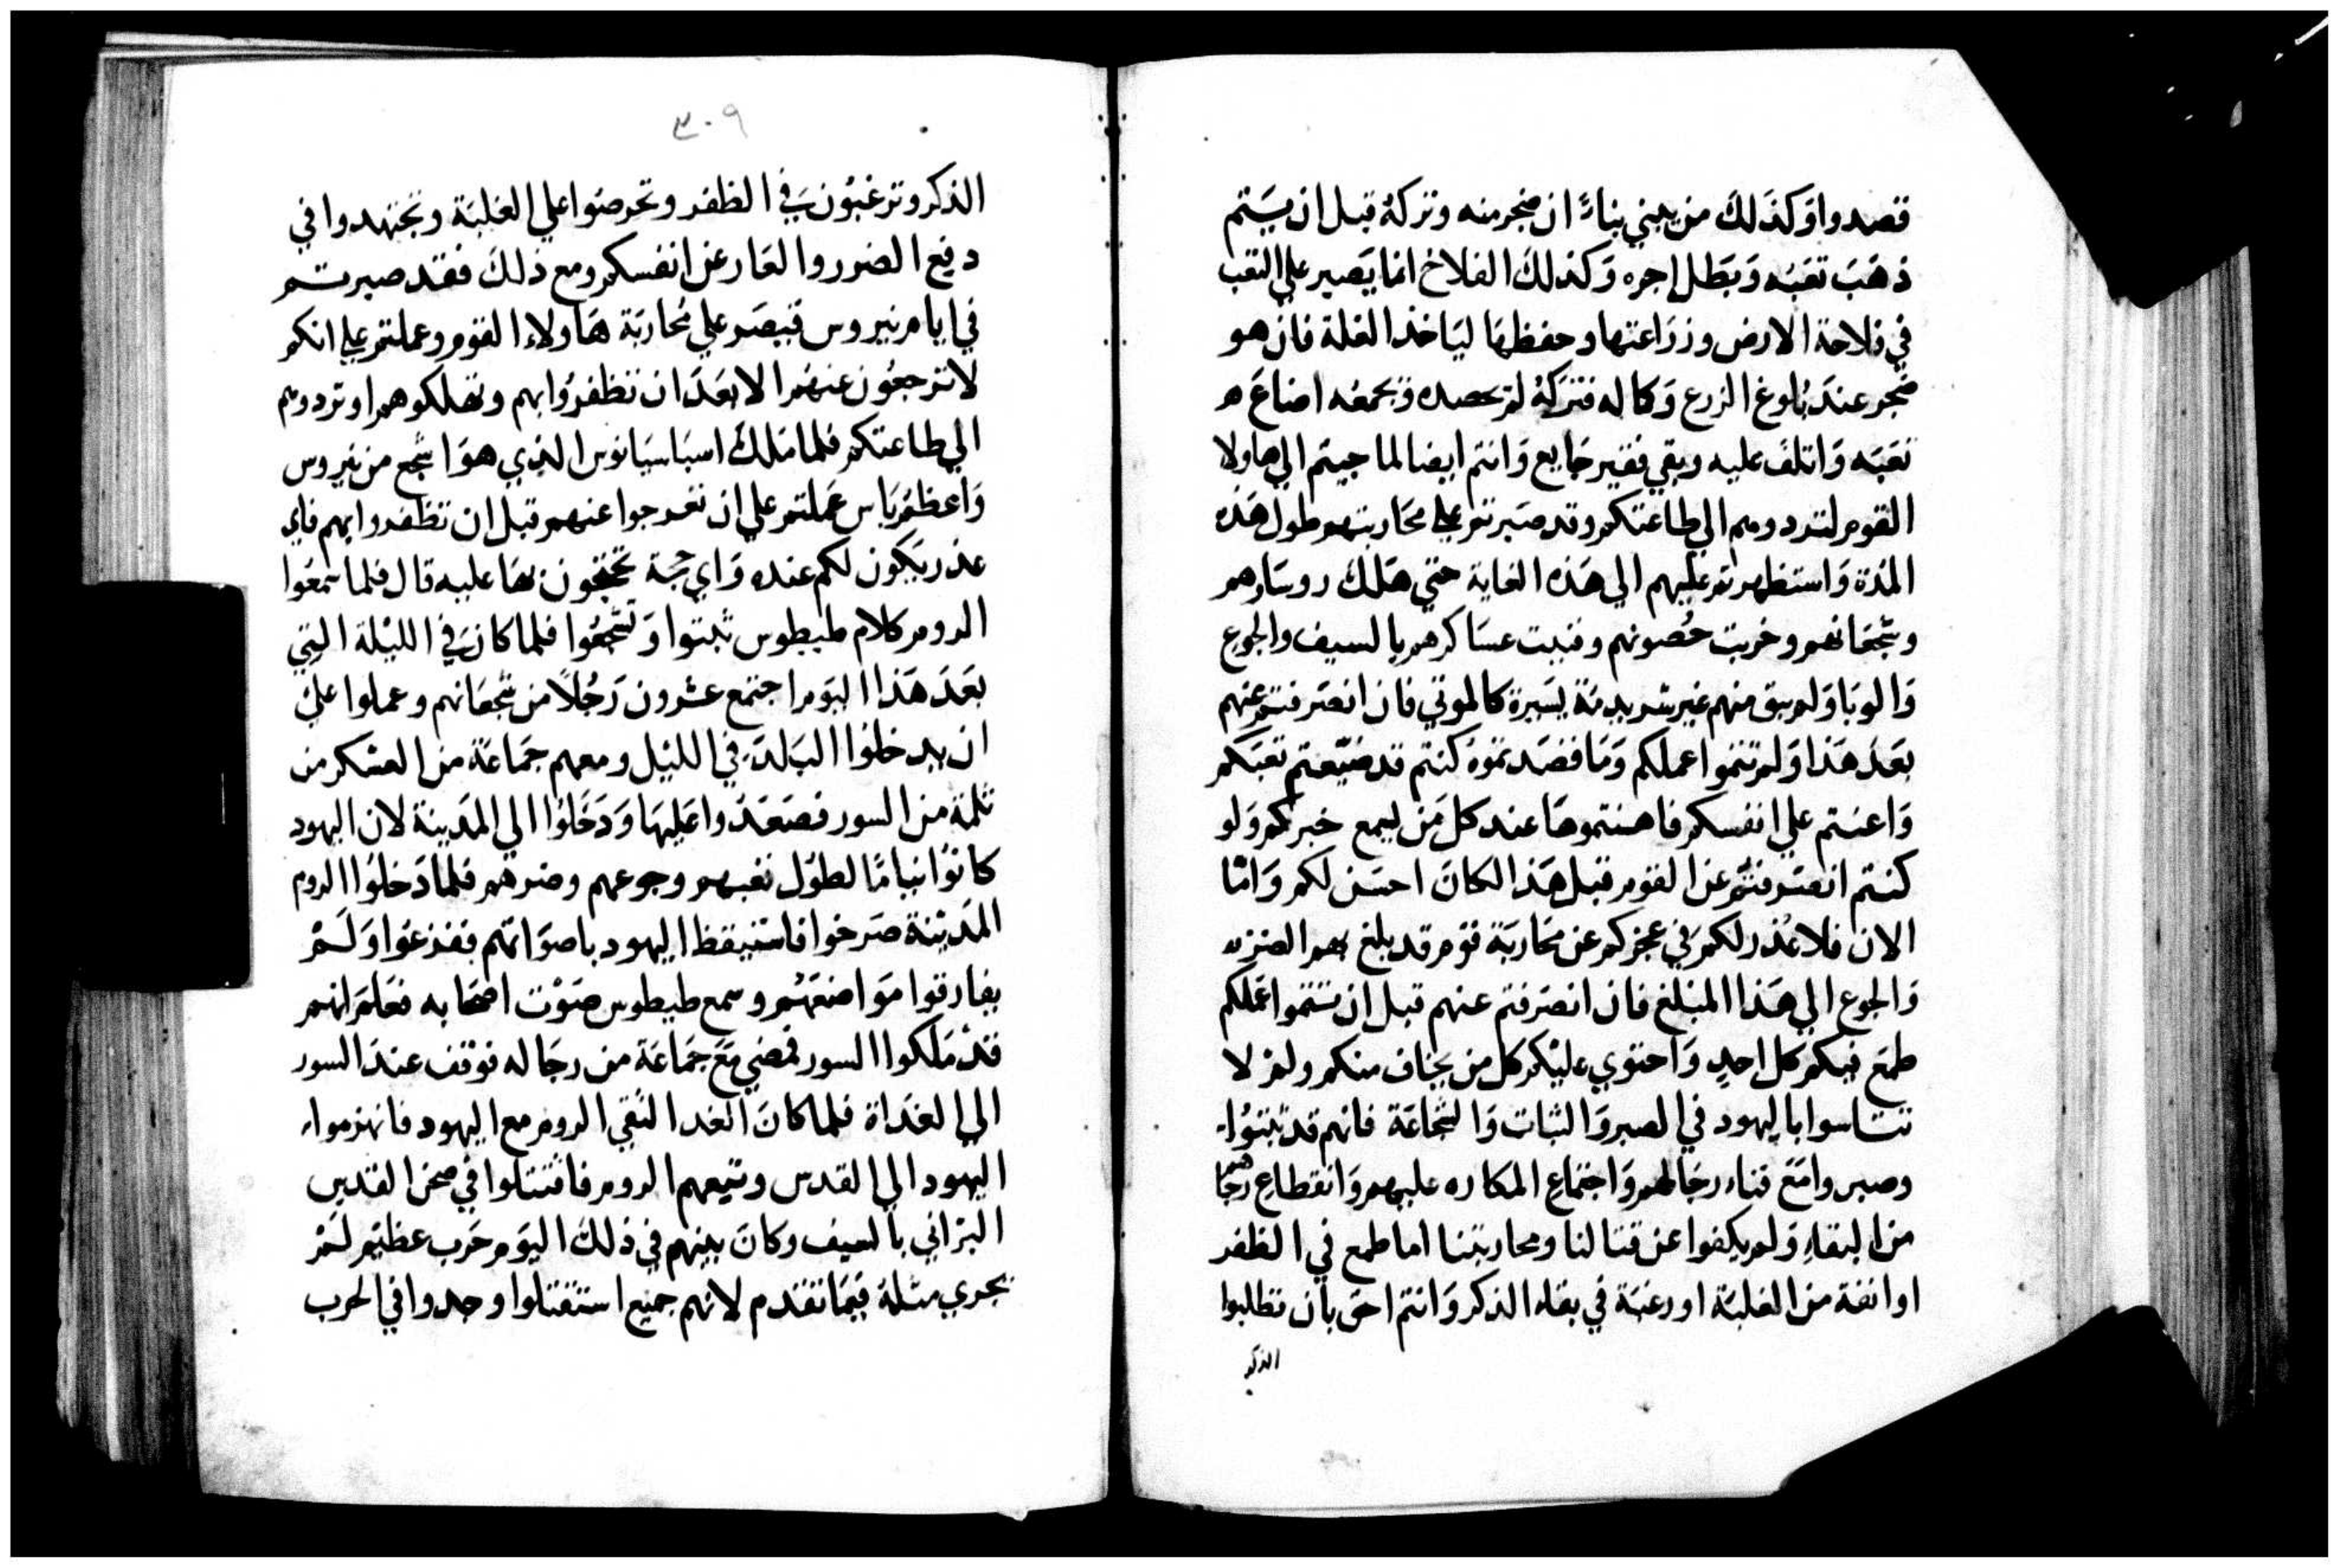 قصدوا وَكذَلكَ من يبني بناءً ان ضجر منه وتركهُ قبل ان يسَتتم
ذهَبَ تعَبَه وَبَطل اجره وَكذلكَ الفلاح انما يَصبر علي التعب
في فلاحة الارض وزرَاعتها وحفظهَا ليَاخذ الغلة فان هو
ضجر عندَ بُلوغ الزرع وَكماله فتركهُ لم يحصده ويجمعُه اضاعَ
تعَبَه وَاتلفَ عليه وبقي فقير جَايع وَانتم ايضا لما جيتم الي هاولا
القوم لتردوهم الي طاعتكم وقد صَبرتم علي محَاربتهم طول هَذه
المدَة وَاستظهرتم عليهم الي هَذه الغاية حتي هَلكَ روسَاوهم
وشجعَانهم وخربت حُصونهم وفنيت عسَاكرهم بالسيف والجوع
وَالوبَا وَلم يبق منهم غير شرذمَة يسَيرة كالموتي فان انصَرفتم عنهم
بعَدَ هَذا وَلم تتموا عملكم وَمَا قصَدتموهُ كنتم قد ضيّعتم تعَبَكم
وَاعنتم علي انفسكم فاهنتموهَا عند كل مَن يسمع خبركم وَلو
كنتم انصَرفتم عن القوم قبل هَذا لكانَ احسَن لكم وَامّا
الان فلا عُذر لكم في عجزكم عن محَاربَة قوم قد بلغ بهم الضر
وَالجوع الي هَذا المبلغ فان انصَرفتم عنهم قبل ان تتموا عمَلكم
طمَع فيكم كل احدٍ وَاحتوي عليْكم كل من يخاف منكم ولم لا
تتاسوا باليهود في الصبر وَالثبات وَالشجَاعَة فانهم قد ثبتوُا
وصبروا مَعَ فناء رجَالهم وَاجتماعِ المكاره عليهم وَانقطاعِ رجَاهم
من البقاءِ وَلم يكفوا عن قتالنا ومحاربتنا اما طمع في الظفر
او انفة من الغلبَة او رغبَة في بقاء الذكر وَانتم احق بان تطلبوا
الذكر
٣٠٩
الذكر وترغبُون في الظفر وتحرصُوا علي الغلبَة وتجتهدوا في
دفع الضرر والعَار عن انفسكم ومع ذلكَ فقد صبرتم
في ايام نيروس قيصَر علي مُحاربَة هَاولاء القوم وعملتم علي انكم
لا ترجعُون عنهُم الا بعَدَ ان تظفرُوا بهم وتهلكوهم او تردوهم
الي طاعتكم فلما مَلكَ اسبَاسيَانوس الذي هوَ اشجع من نيروس
وَاعظم بَاس عمَلتم علي ان تفرجوا عنهم قبل ان تظفروا بهم فاي
عذر يَكون لكم عنده وَاي حجَة تحتجون بهَا عليه قال فلما سمعُوا
الروم كلام طيطوس ثبتوا وَتشجعُوا فلما كانَ في الليْلة التي
بعَدَ هَذا اليَوم اجتمع عشرون رَجُلاً من شجعَانهم وعملوا عليَ
ان يدخلوُا البَلدَ في الليْل ومعهم جَماعَة من العسْكر من
ثلمة من السور فصَعَدُوا عَليهَا وَدَخَلوُا الي المَدينة لان اليهود
كانوُا نيامًا لطوُل تعَبهم وجوعهم وضرهم فلما دَخلوُا الروم
المَدينَة صَرخوا فاستيقظ اليهود باصوَاتهم ففزعُوا وَلَمْ
يفارقوا مَوَاضعَهُم وسمع طيطوس صَوْت اصْحَابه فعَلمَ انهم
قدْ مَلكوا السور فمضي مَعَ جَماعَة من رجَاله فوقف عندَ السور
الي الغدَاة فلما كانَ الغد التَقي الروم مع اليهود فانهزموا
اليهود الي القدس وتبعهم الروم فاقتتلوا في صحن القدس
البرَاني بالسيف وكانَ بينهم في ذلكَ اليَوم حَرب عظيم لَمْ
يجري مثلهُ فيمَا تقدم لانهم جميع استقتلوا وجدوا في الحرب